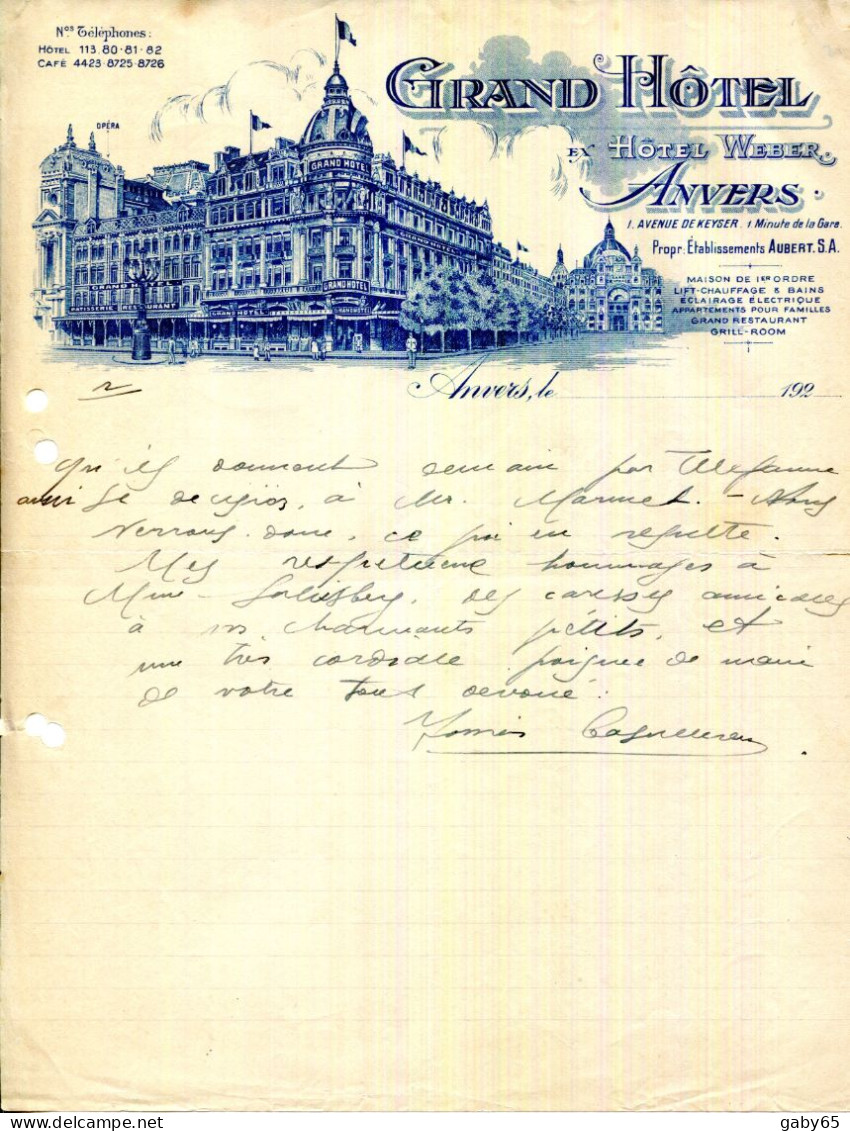 Nos Téléphones:
HÔTEL 113.80·81·82
CAFÉ 4423·8725·8726
GRAND HÔTEL
EX HÔTEL WEBER.
ANVERS.
1, AVENUE DE KEYSER. 1 Minute de la Gare.
Propr: Établissements AUBERT. S.A.
MAISON DE 1ER ORDRE
LIFT-CHAUFFAGE & BAINS
ÉCLAIRAGE ÉLECTRIQUE
APPARTEMENTS POUR FAMILLES
GRAND RESTAURANT
GRILL-ROOM
OPÉRA
GRAND HOTEL
GRAND HOTEL
PATISSERIE RESTAURANT
GRAND HOTEL
GRAND HOTEL
Anvers, le 192
2
qu'ils donnent demain par
de à Mr. - Nous
verrons donc, ce qui en résulte.
Mes hommages à
Mme des caresses amicales
à vos charmants petits, et
une très cordiale poignée de main
de votre tout dévoué.
gaby65